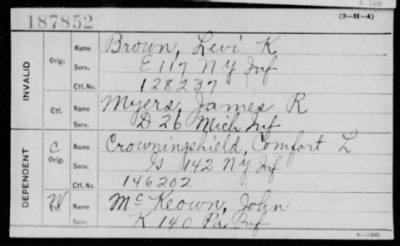 187852
(3-H-4)
INVALID
Orig.
Name Brown, Levi K
Serv. E 117 NY Inf
Ctf. No. 128237
Ctf.
Name Myers, James R
Serv. D 26 Mich Inf
DEPENDENT
C
Orig.
Name Crowninshield, Comfort L
Serv. G 142 NY Inf
Ctf. No. 146202
W
Name McKeown, John
Serv. K 140 Pa Inf